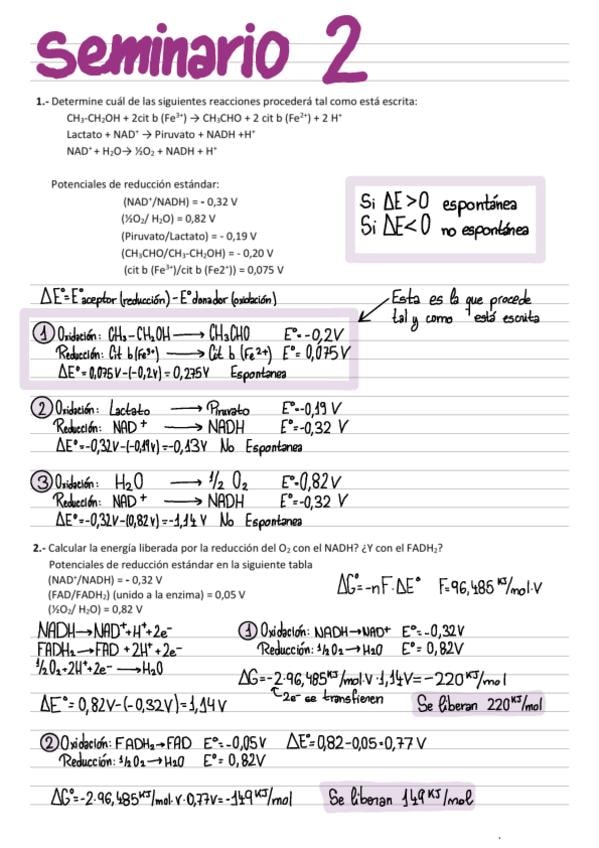 Seminario 2
1.- Determine cuál de las siguientes reacciones procederá tal como está escrita:
CH₃-CH₂OH + 2cit b (Fe³⁺) → CH₃CHO + 2 cit b (Fe²⁺) + 2 H⁺
Lactato + NAD⁺ → Piruvato + NADH +H⁺
NAD⁺ + H₂O→ ½O₂ + NADH + H⁺
Potenciales de reducción estándar:
(NAD⁺/NADH) = - 0,32 V
(½O₂/ H₂O) = 0,82 V
(Piruvato/Lactato) = - 0,19 V
(CH₃CHO/CH₃-CH₂OH) = - 0,20 V
(cit b (Fe³⁺)/cit b (Fe2⁺)) = 0,075 V
Si ΔE>0 espontánea
Si ΔE<0 no espontánea
ΔE°=E°aceptor (reducción)-E°donador (oxidación)
Esta es la que procede
tal y como está escrita
① Oxidación: CH₃-CH₂OH → CH₃CHO E°=-0,2V
Reducción: Cit b(Fe³⁺) → Cit b (Fe²⁺) E°= 0,075V
ΔE°=0,075V-(-0,2V)=0,275V Espontanea
② Oxidación: Lactato → Piruvato E°=-0,19 V
Reducción: NAD⁺ → NADH E°=-0,32 V
ΔE°=-0,32V-(-0,19V)=-0,13V No Espontanea
③ Oxidación: H₂O → ½ O₂ E°=0,82V
Reducción: NAD⁺ → NADH E°=-0,32 V
ΔE°=-0,32V-(0,82V)=-1,14 V No Espontanea
2.- Calcular la energía liberada por la reducción del O₂ con el NADH? ¿Y con el FADH₂?
Potenciales de reducción estándar en la siguiente tabla
(NAD⁺/NADH) = - 0,32 V
(FAD/FADH₂) (unido a la enzima) = 0,05 V
(½O₂/ H₂O) = 0,82 V
ΔG°=-nF·ΔE° F=96,485 KJ/mol·V
NADH→NAD⁺+H⁺+2e⁻
FADH₂→FAD +2H⁺+2e⁻
½O₂+2H⁺+2e⁻ →H₂O
ΔE°= 0,82V-(-0,32V)=1,14V
① Oxidación: NADH→NAD⁺ E°=-0,32V
Reducción: ½O₂→H₂O E°= 0,82V
ΔG=-2·96,485 KJ/mol·V·1,14V=-220 KJ/mol
2e⁻ se transfieren
Se liberan 220 KJ/mol
② Oxidación: FADH₂→FAD E°=-0,05V ΔE°=0,82-0,05=0,77V
Reducción: ½O₂→H₂O E°= 0,82V
ΔG°=-2·96,485 KJ/mol·V·0,77V=-149 KJ/mol Se liberan 149 KJ/mol